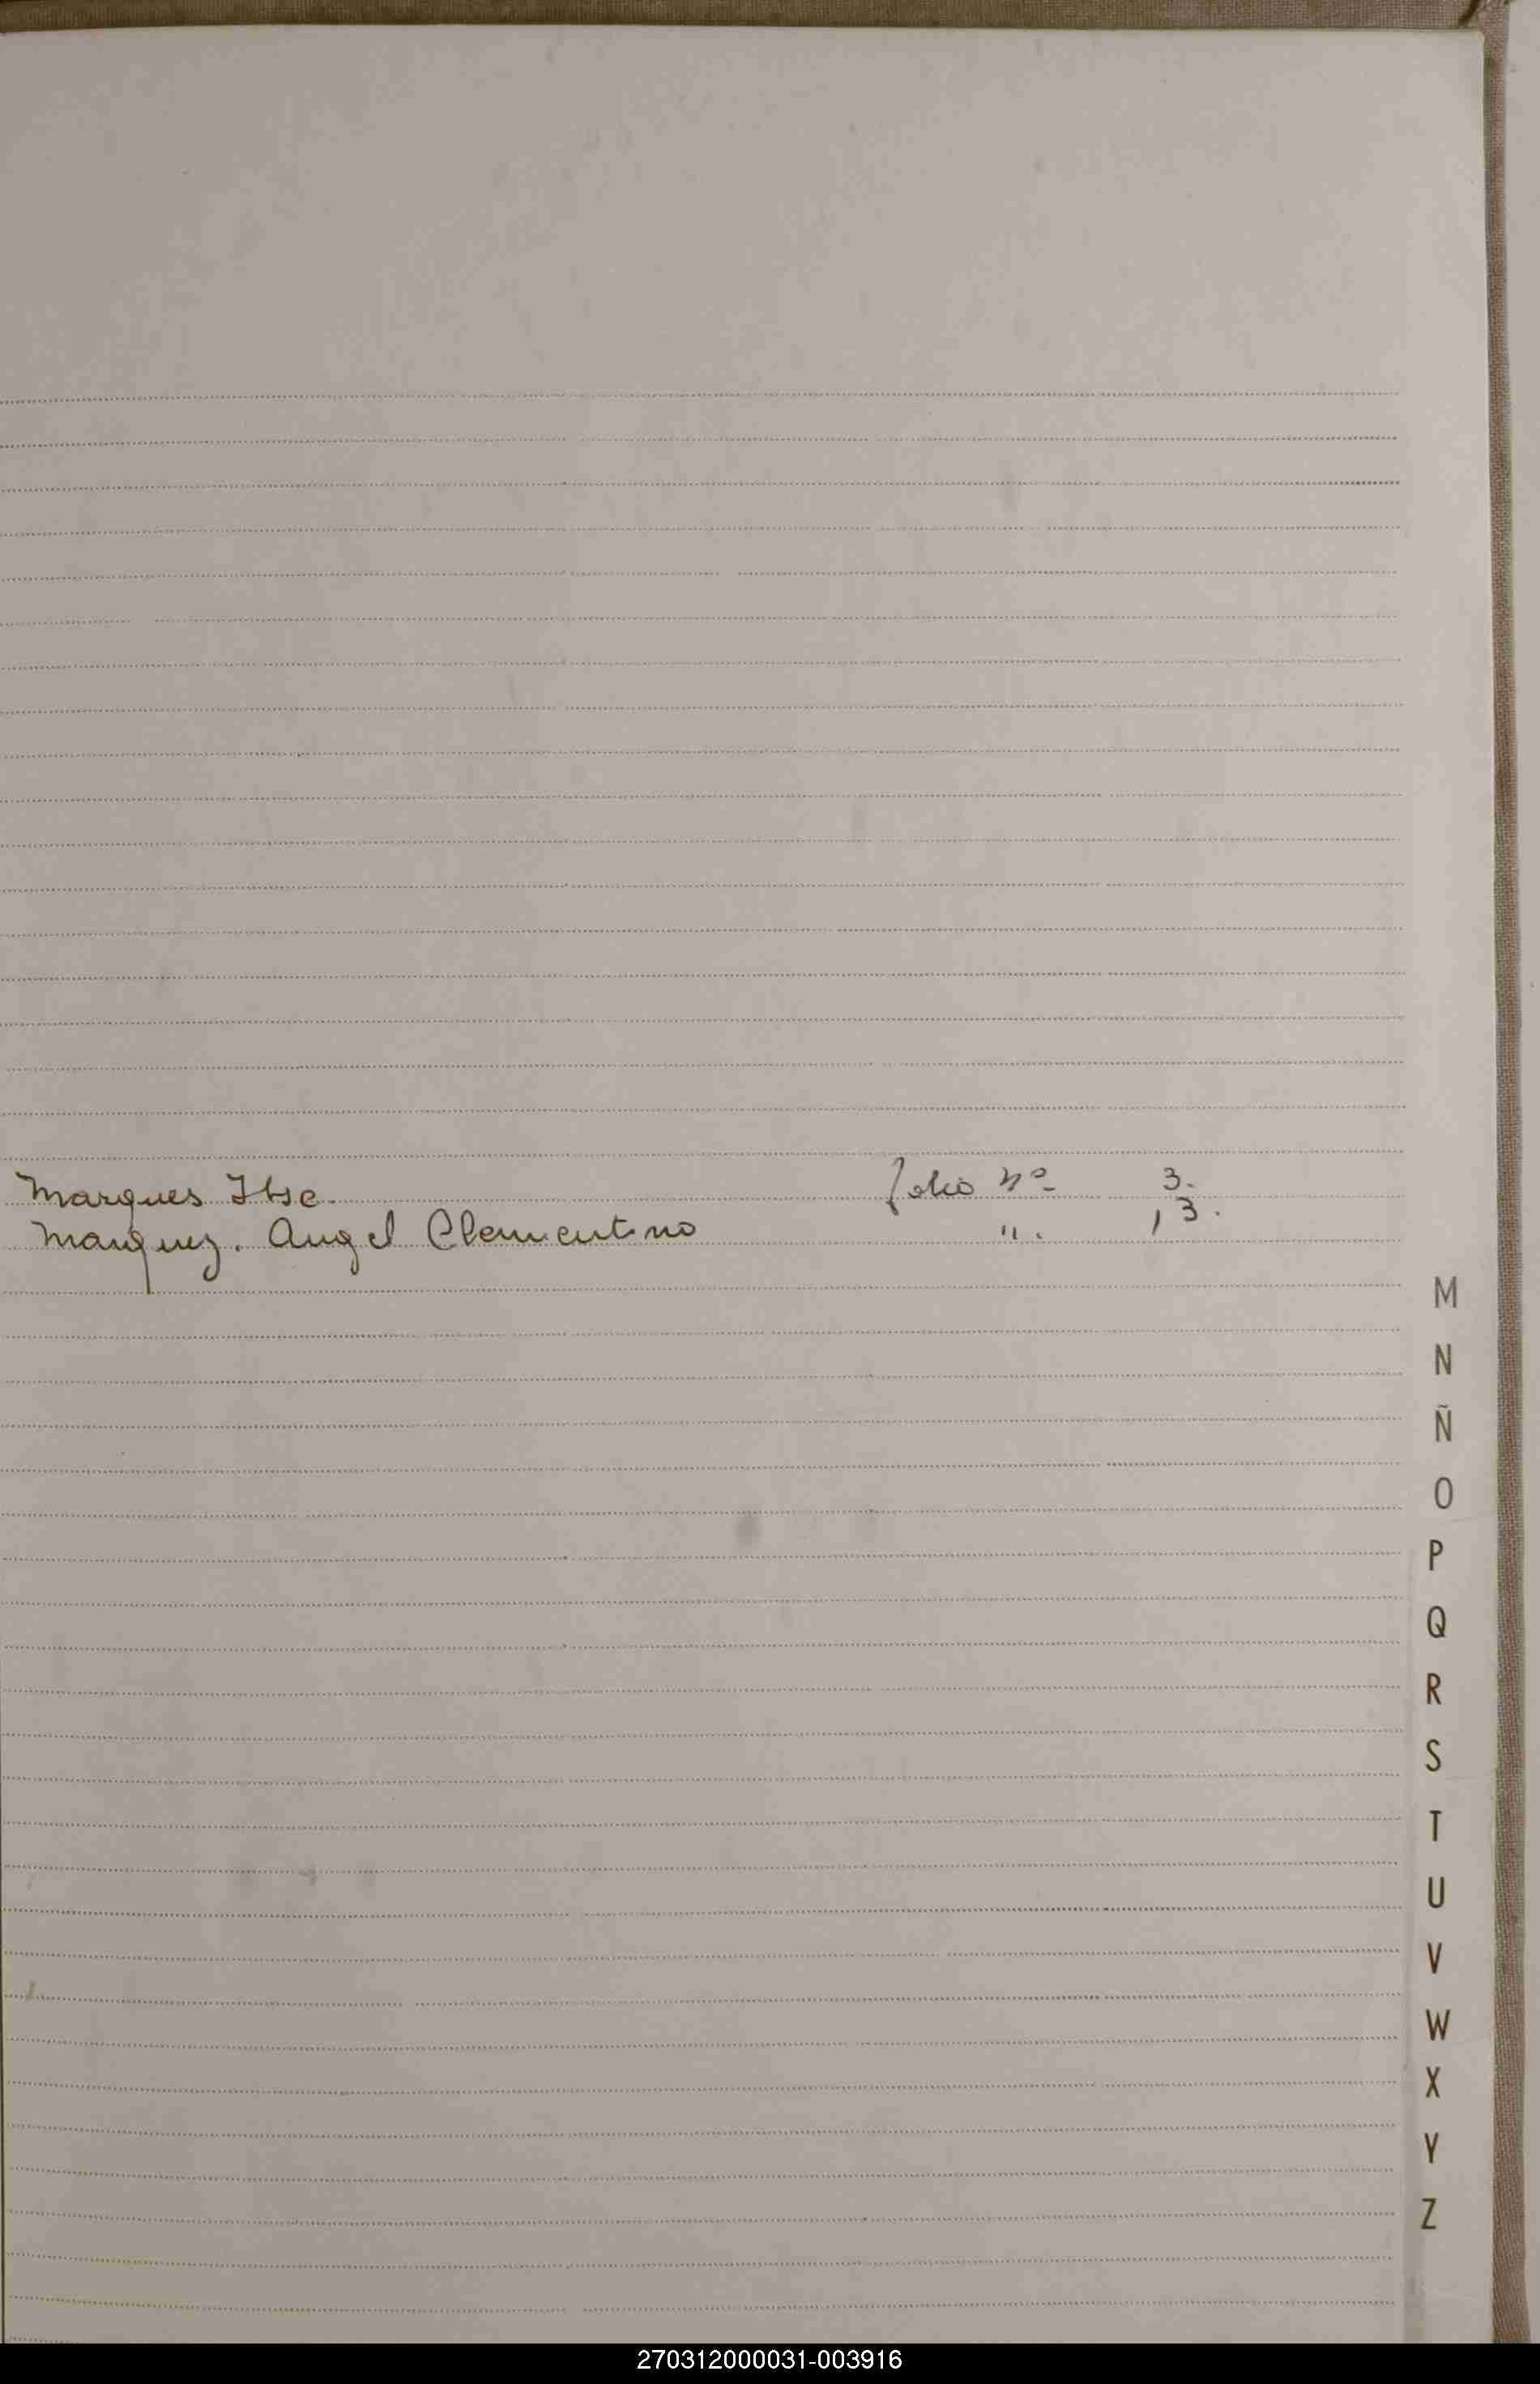 Marques Ilse. folio Nº 3.
Marquez. Angel Clementino ". 13.
M
N
Ñ
O
P
Q
R
S
T
U
V
W
X
Y
Z
270312000031-003916